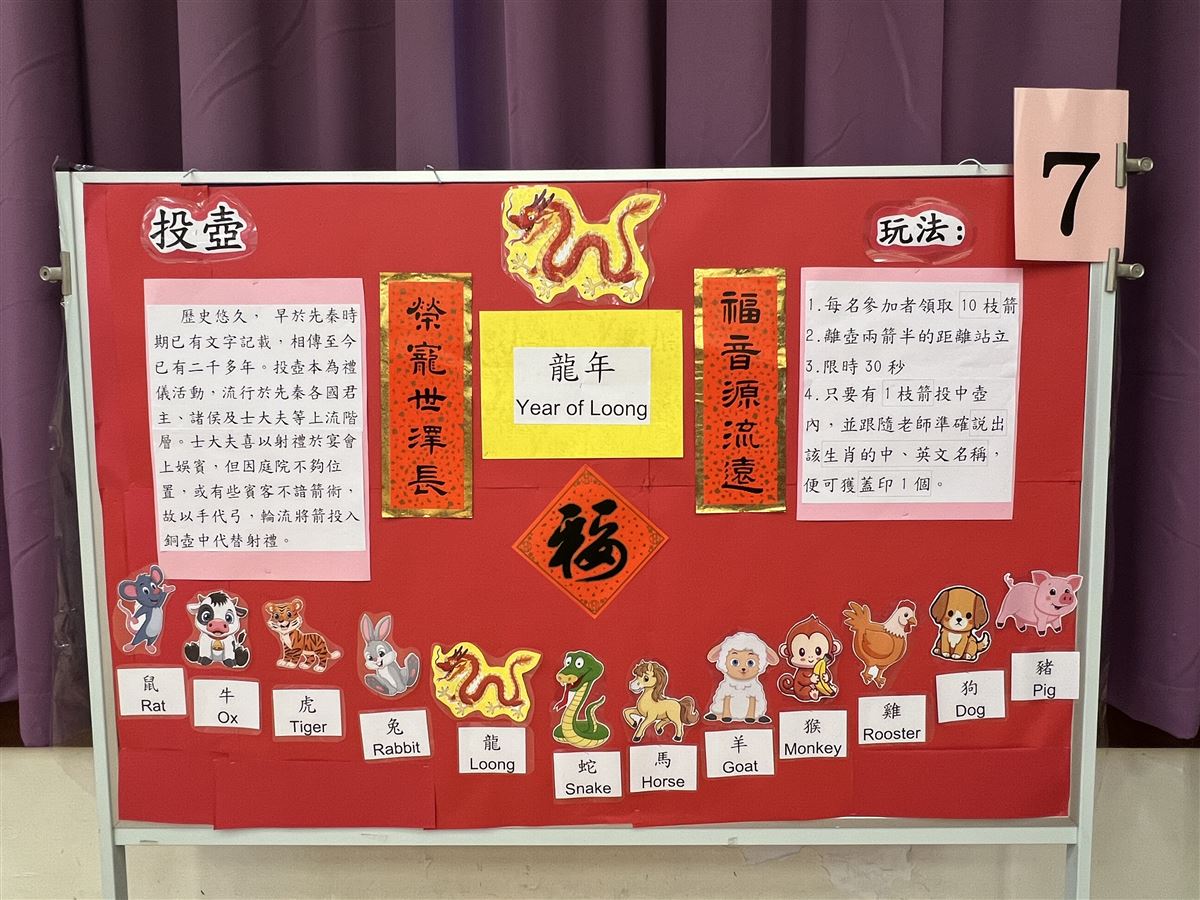 7
投壺
歷史悠久， 早於先秦時
期已有文字記載，相傳至今
已有二千多年。投壺本為禮
儀活動，流行於先秦各國君
主、諸侯及士大夫等上流階
層。士大夫喜以射禮於宴會
上娛賓，但因庭院不夠位
置，或有些賓客不諳箭術，
故以手代弓，輪流將箭投入
銅壺中代替射禮。
榮寵世澤長
龍年
Year of Loong
福
福音源流遠
玩法：
1.每名參加者領取 10 枝箭
2.離壺兩箭半的距離站立
3.限時 30 秒
4.只要有 1 枝箭投中壺
內，並跟隨老師準確說出
該生肖的中、英文名稱，
便可獲蓋印 1 個。
鼠
Rat
牛
Ox
虎
Tiger
兔
Rabbit
龍
Loong
蛇
Snake
馬
Horse
羊
Goat
猴
Monkey
雞
Rooster
狗
Dog
豬
Pig